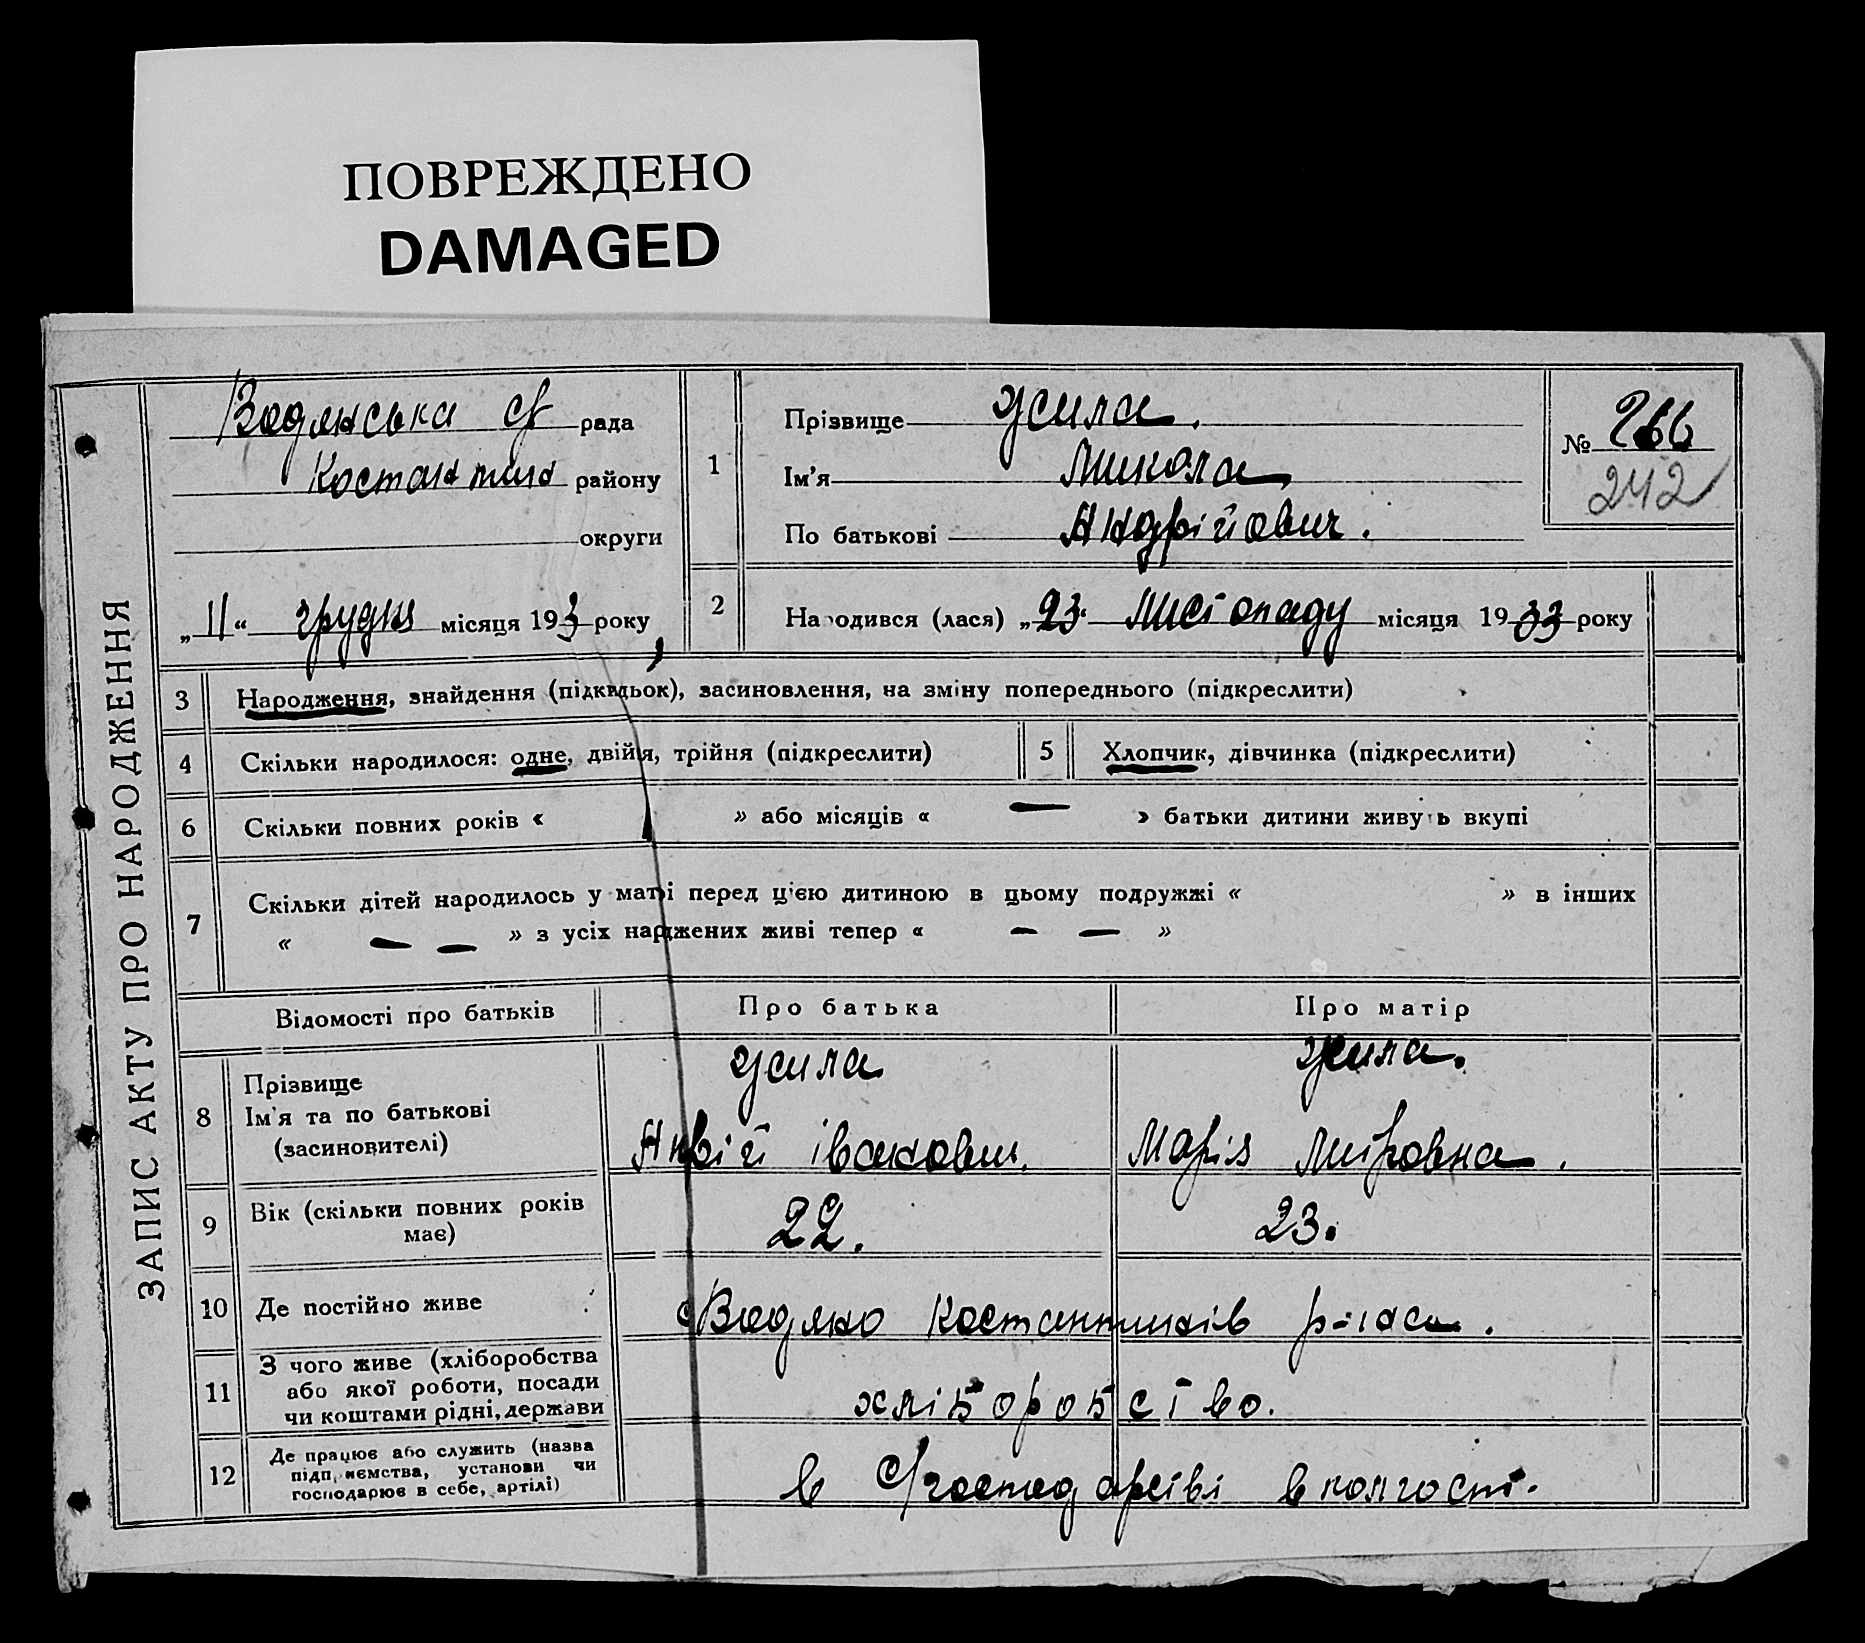 ПОВРЕЖДЕНО
DAMAGED
ЗАПИС АКТУ ПРО НАРОДЖЕННЯ
Водянська с/ рада
Костантин району
округи
„11“ грудня місяця 1933 року
1
Прізвище Усила.
Ім'я Микола
По батькові Андрійович.
№ 266
242
2
Народився (лася) „23“ Листопаду місяця 1933 року
3 Народження, знайдення (підкидьок), засиновлення, на зміну попереднього (підкреслити)
4 Скільки народилося: одне, двійня, трійня (підкреслити)
5 Хлопчик, дівчинка (підкреслити)
6 Скільки повних років « » або місяців « — » батьки дитини живуть вкупі
7 Скільки дітей народилось у матері перед цією дитиною в цьому подружжі « » в інших
« — — » з усіх народжених живі тепер « — — »
Відомості про батьків Про батька Про матір
8 Прізвище
Ім'я та по батькові
(засиновителі)
Усила Усила.
Андрій Іванович. Марія
9 Вік (скільки повних років
має)
22. 23.
10 Де постійно живе
с Водяно Костантинів р-на
11 З чого живе (хліборобства
або якої роботи, посади
чи коштами рідні, держави
хліборобство.
12 Де працює або служить (назва
підприємства, установи чи
господарює в себе, артілі)
в с/господарстві в колгоспі.